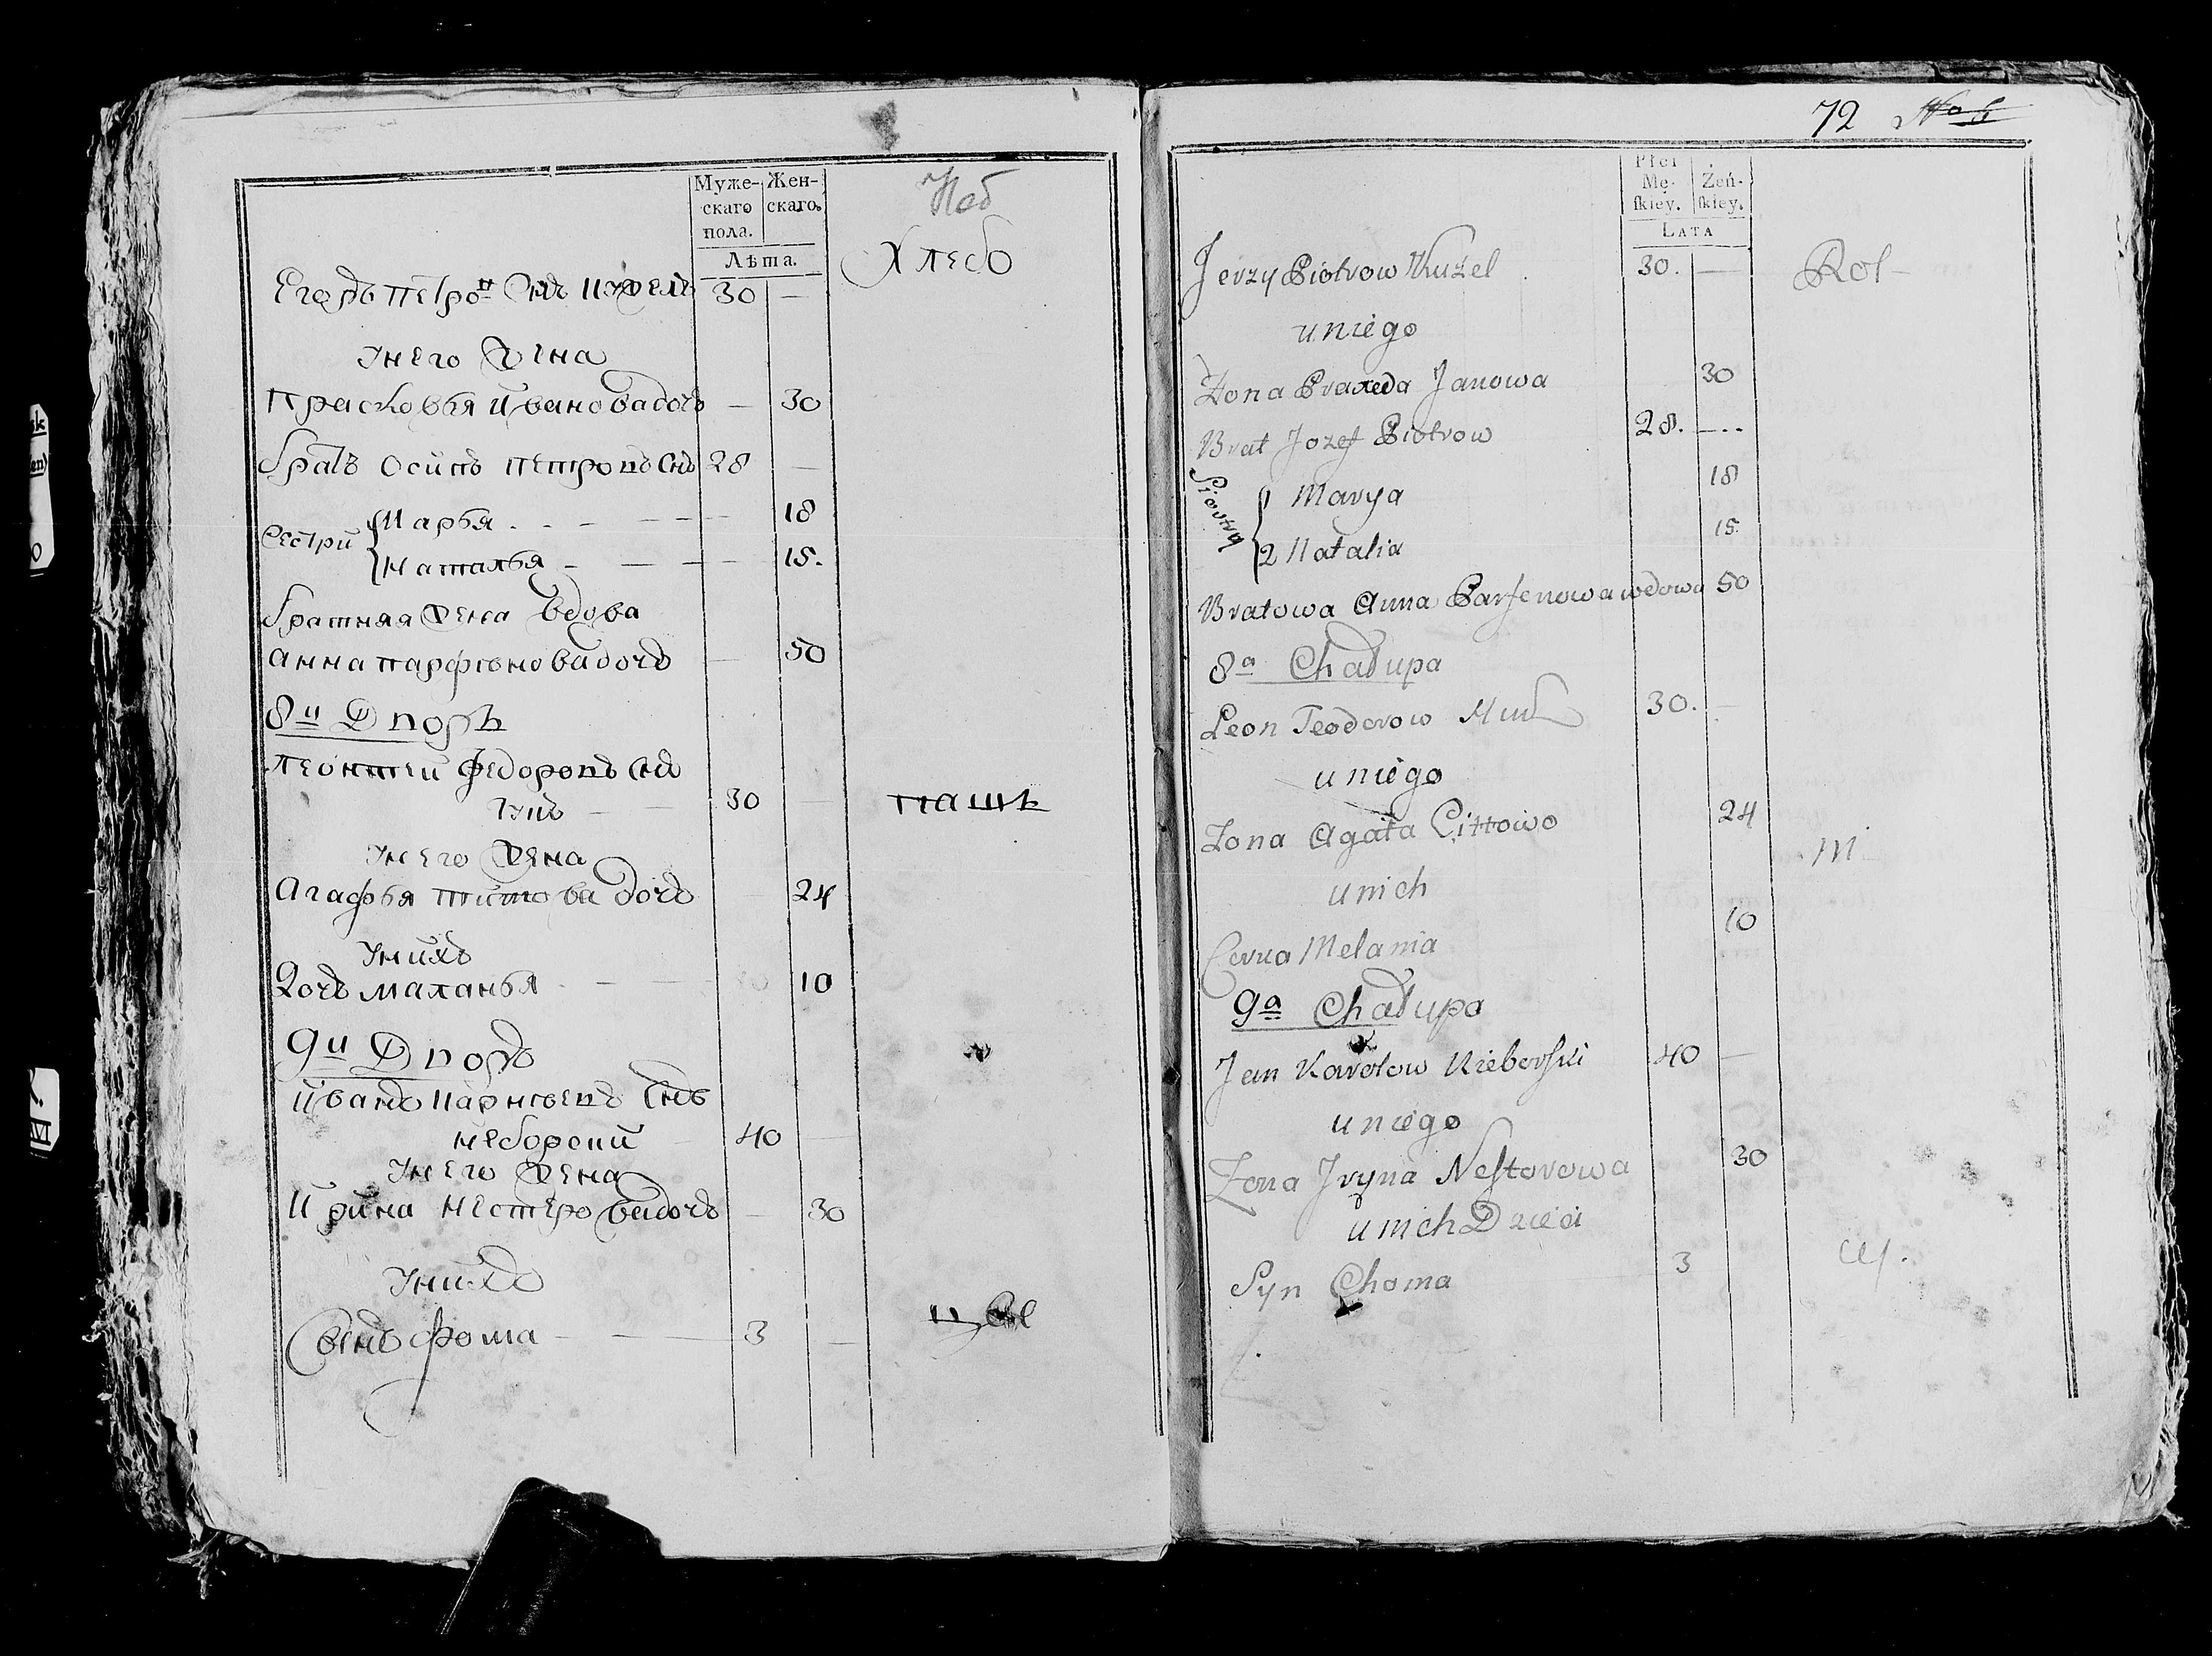 Муже-
скаго
пола.
Жен-
скаго.
Лѣта.
Хлебо
Егоръ Петро сн 30 —
У него жена
Прасковья Иванова дочь — 30
братъ Осипъ Петровъ снъ 28 —
сестри { Марья — 18
Наталья — 15.
братняя жена вдова
Анна Парфенова дочь — 50
8й Дворъ
Леонтей Федоровъ снъ
30 —
У него жена
Агафья Титова дочь 24
У нихъ
Дочь Маланья — 10
9й Дворъ
Иванъ снъ
40 —
У него жена
Ирина Нестерова дочь — 30
У нихъ
Сынъ Фома — 3 —
72
Płci
Mę-
ſkiey.
Żeń-
ſkiey.
LATA
Jerzy Piotrow Kużel 30. — Rol-
u niego
Żona Praxeda Janowa 30
Brat Jozef Piotrow 28. —
Siostry { 1 Marya 18
2 Natalia 15.
Bratowa Anna Parfenowa wdowa 50
8a Chałupa
Leon Teodorow 30. —
u niego
Żona Agata Cittowo 24
u nich
Corka Melania 10
9a Chałupa
Jan Karolow Nieborſki 40 —
u niego
Żona Jryna Neſtorowa 30
u nich Dzieci
Syn Choma 3